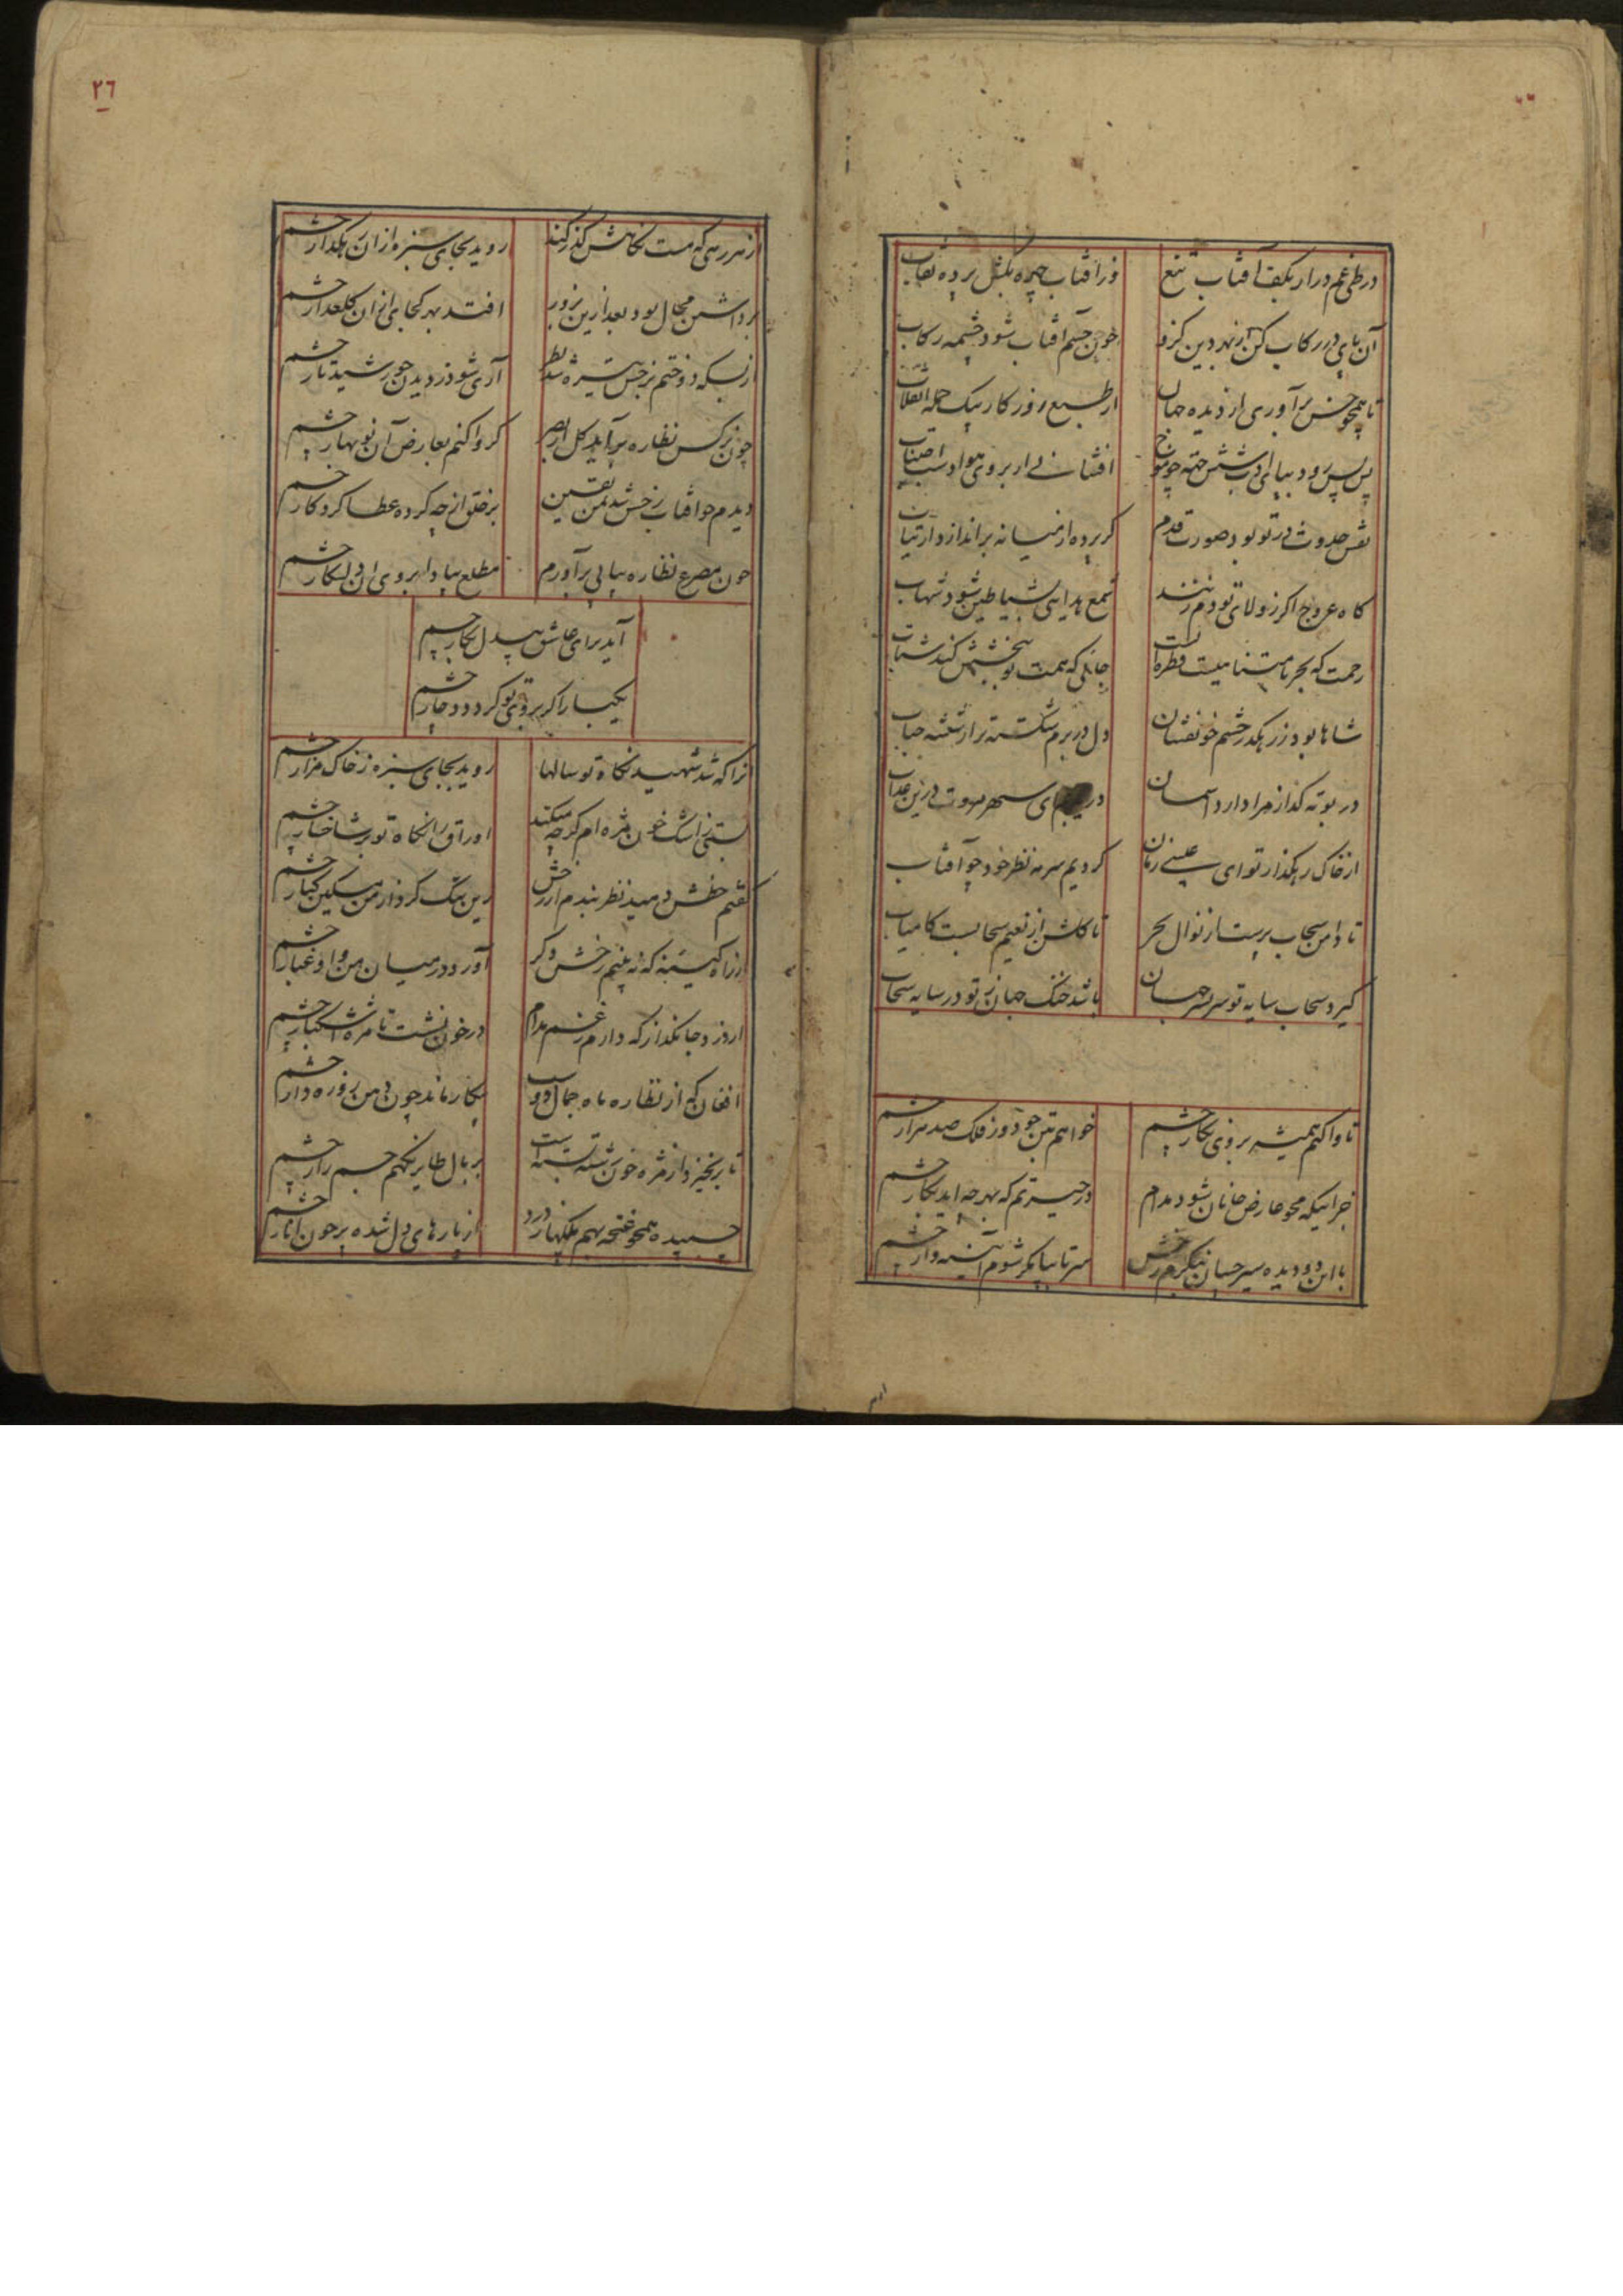 در طی غم درار بکف آفتاب تیغ
ور آفتاب چهره بکش برده نقاب
آن پای در رکاب کن از بهر دین کزو
چون چشم آفتاب شود چشمه رکاب
تا همچو برآوری از دیده جهان
از طبع روزگار بیک حمله انقلاب
پس پس رود بپای ادب
افشانی ار بروی هوا
نقش حدوث در تو بود صورت قدم
گر پرده از میانه براندازد ارتیاب
گاه عروج اگر ز ولای تو دم زنند
شمع هدایت شیاطین شود شهاب
رحمت که بحر نامتناهیست قطره است
جائی که همت تو ببخشش کند شتاب
شاها بود ز رهگذر چشم خونفشان
دل در برم شکسته تر از شیشه حباب
در بوته گداز مرا دارد آسمان
در سپهر مروت درین عذاب
از خاک رهگذار تو ای عیسی زمان
کردیم سرمه نظر خود چو آفتاب
تا دامن سحاب پرست از نوال بحر
تا گلشن از نعیم سحابست کامیاب
گیرد سحاب سایه تو سربسر جهان
باشد خنک جهان ز تو در سایه سحاب
تا واکنم همیشه بروی نگار چشم
خواهم بتن چو دوز فلک صد هزار چشم
جز اینکه محو عارض جانان شود مدام
در حیرتم که بهر چه اید بکار چشم
با این دو دیده سیر چسان بنگرم رخش
سر تا بپا مگر شوم آئینه وار چشم
٢٦
از هر رهی که مست نگاهش گذر کند
روید بجای سبزه ازان رهگذار چشم
برداشتن محال بود بعد ازین بزور
افتد بهر کجا ازان گلعذار چشم
از بسکه دوختم برخش تیره شد نظر
آری شود ز دیدن خورشید تار چشم
چون نرگس نظاره برآید گل از بصر
گر واکنم بعارض آن نوبهار چشم
دیدم چو آفتاب رخش شد بمن یقین
بر خلق از چه کرده عطا کردگار چشم
چون مصرع نظاره بیانی برآورم
مطلع بیاد ابروی آن دل شکار چشم
آید برای عاشق بیدل بکار چشم
یکبار اگر بروی تو گردد دوچار چشم
آنرا که شد شهید نگاه تو سالها
روید بجای سبزه ز خاک مزار چشم
بستی ز اشک خون مژه ام گرچه میکند
اوراق را نگاه تو بر شاخسار چشم
گفتم خطش دمید نظر بندم از رخش
زین بیش گرد از من مسکین کنار چشم
از راه کینه که نه بینم رخش دگر
آورد در میان من و او غبار چشم
از درد جانگداز که دارم ز غم مدام
در خون نشست تا مژه اشکبار چشم
افغان که از نظاره ماه جمال دوست
بیکار ماند چون دهن روزه دار چشم
تا برنخیزد از مژه خون بسته است
بر بال طایر نگهم جسم زار چشم
چسپیده همچو غنچه بهم پلکها ز درد
از پارهای دل شده پر چون انار چشم